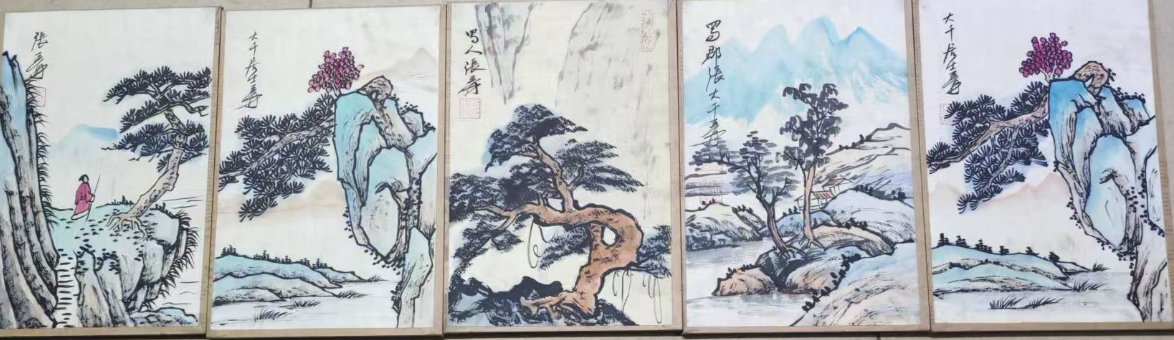 張爰
大千居士爰
蜀人張爰
蜀郡張大千爰
大千居士爰